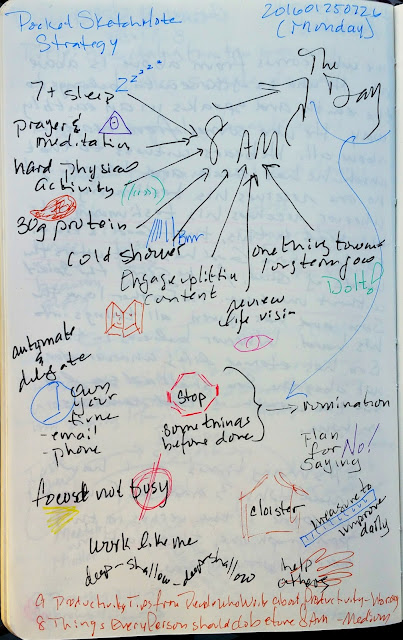 Pocket Sketchnote
Strategy
201601250726
(Monday)
The
Day
7+ sleep zzzzzz
prayer &
meditation
8
AM
hard physical
activity
30g protein
cold shower
Brrr
Engage uplifting
content
review
life vision
one thing toward
long term goal
DoIt!
automate
&
delegate
own
your
time
- email
- phone
Stop
some things
before done
rumination
Plan
for
Saying
No!
focus not busy
cloister
measure to
improve
daily
work like me
deep-shallow-deep-shallow
help
others
9 Productivity Tips from People who Write about Productivity -
8 Things Every Person should do before 8 AM - Medium